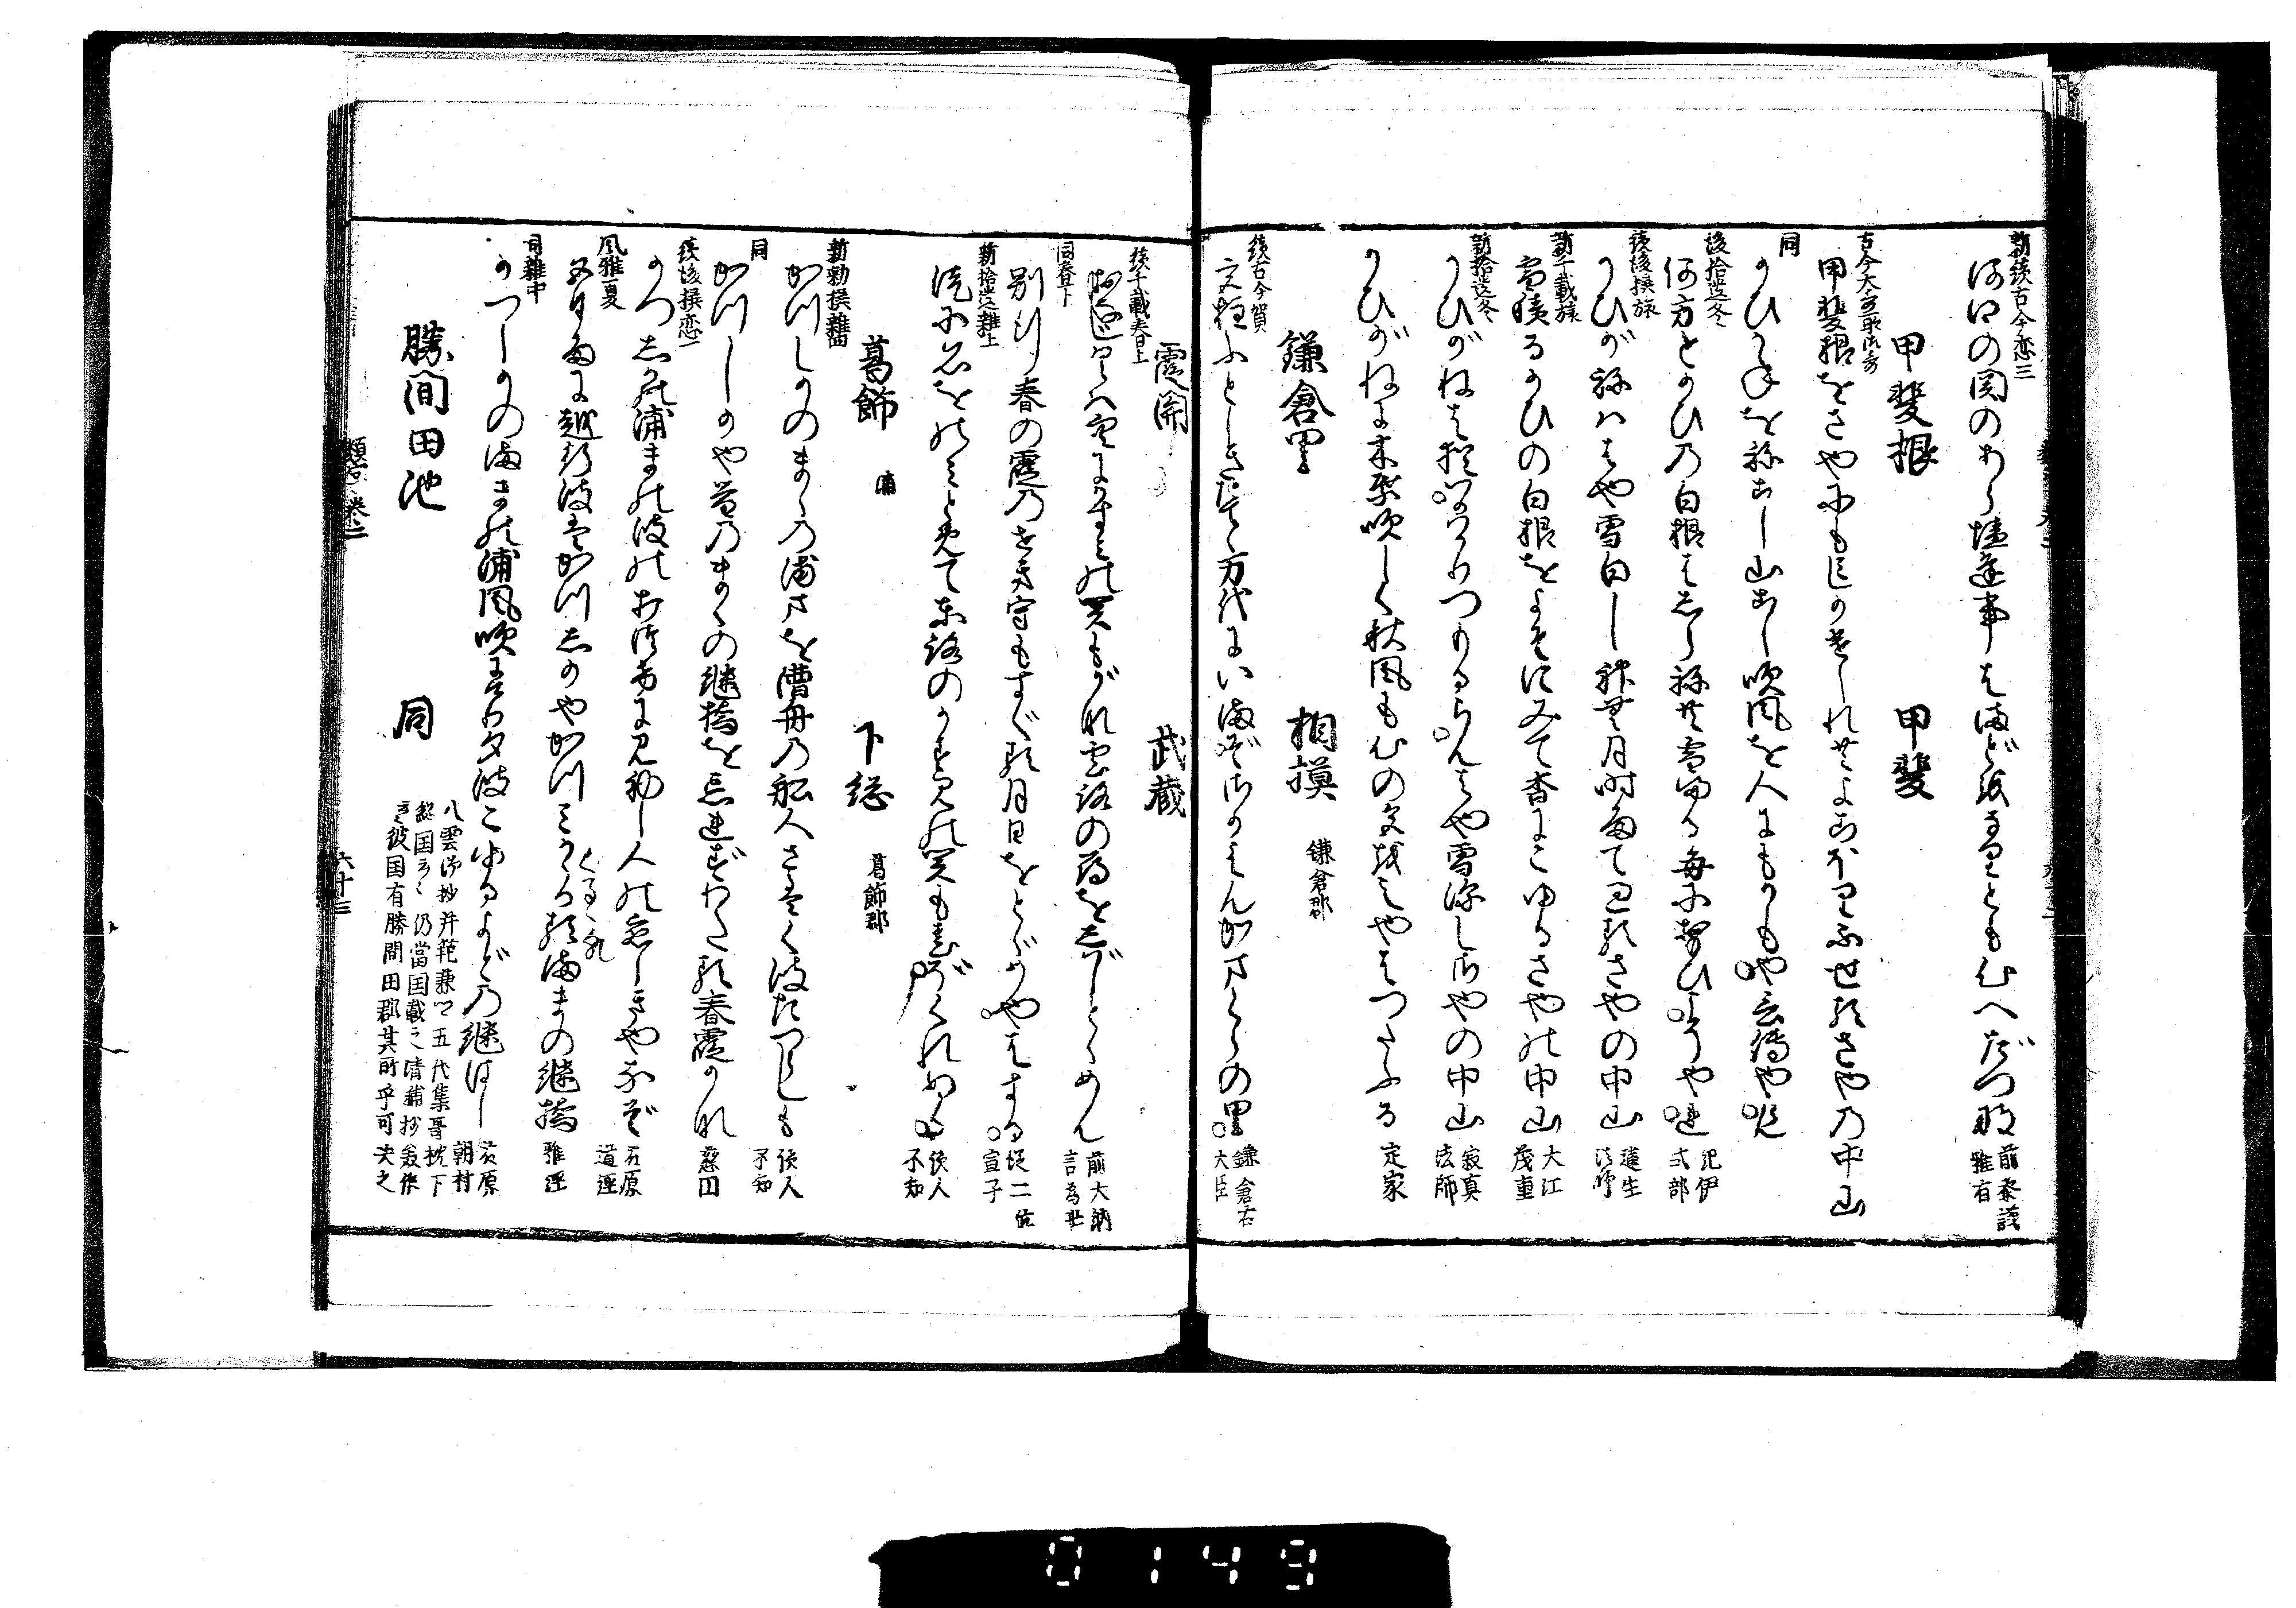 新続古今恋三
河口の関のあら垣逢事はまど遠なりとも心へだつな 前参議雅有
甲斐根 甲斐
古今大哥所御哥
甲斐根をさやにも見しかけゝれなくよこほりふせるさやの中山
同
かひがねをねこし山こし吹風を人にもがもや言伝やせん
後拾遺冬
何方とかひの白根はしらねども雪ふる毎に思ひこそやれ 紀伊式部
続後撰旅
かひがねははや雪白し神無月時雨て過るさやの中山 蓮生法師
新千載旅
雪積るかひの白根をよそにみて杳にこゆるさやの中山 大江茂重
新拾遺冬
かひがねは はや雪深しさやの中山 寂真法師
かひがねに木葉吹しく秋風も心の色をえやはつたふる 定家
鎌倉里 相模 鎌倉郡
続古今賀
宮柱ふとしきたてゝ万代にいまぞさかえんかまくらの里 鎌倉右大臣
霞関 武蔵
続千載春上
関もがな雲路の雁をしばしとゞめん 前大納言為世
同春下
別行春の霞のせき守もすぐる月日をとゞめやはする 従二位宣子
新拾遺雑上
徒に名をのみとめて東路のかすみの関も春ぞくれぬる 読人不知
葛飾 浦 下総 葛飾郡
新勅撰雑四
かつしかのまゝの浦まを漕舟の船人さはぐ波たつらしも 読人不知
同
かつしかや昔のまゝの継橋を忘れずわたる春霞かな 慈円
続後撰恋一
かつしかの浦まの波のおほかたに見初し人の恋しきやなぞ 藤原道経
風雅夏
五月雨に越行波はかつしかやかつみがくるゝまゝの継橋 雅経
同雑中
かつしかのまゝの浦風吹にけり夕波こゆるよどの継はし 藤原朝村
勝間田池 同 八雲御抄并範兼卿五代集哥枕下総国云々仍当国載之清輔抄美作云々彼国有勝間田郡其所乎可決之
類字 巻二
六十三
0149